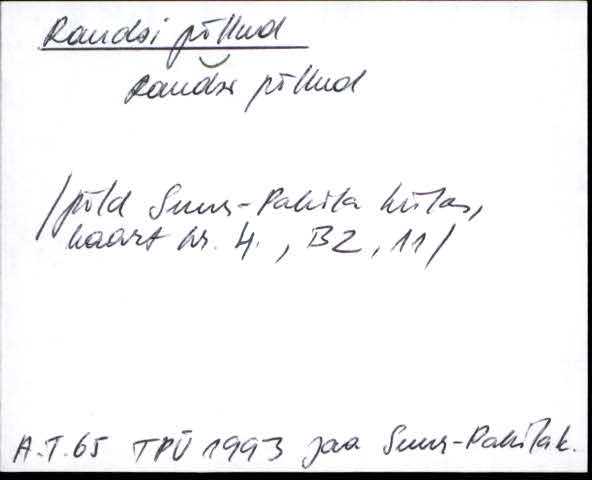 Raudsi põllud
raudsi põllud
/põld Suur-Pahila külas,
kaart nr. 4. , B2, 11/
A.T.65 TPÜ 1993 Jaa Suur-Pahila k.